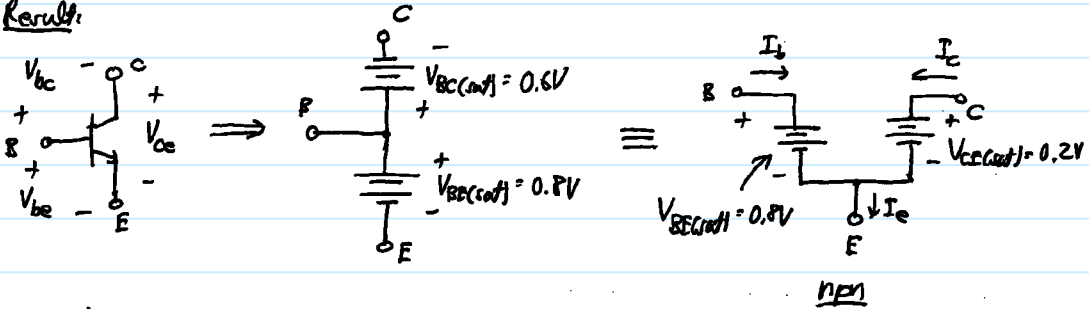 Result:
C
Vbc - C
+
B
+
Vbe -
+
Vce
-
E
⟹
B
-
VBC(sat) = 0.6V
+
+
VBE(sat) = 0.8V
-
E
≡
Ib
Ic
B
+
-
VBE(sat) = 0.8V
+ C
- VCE(sat) = 0.2V
Ie
E
npn